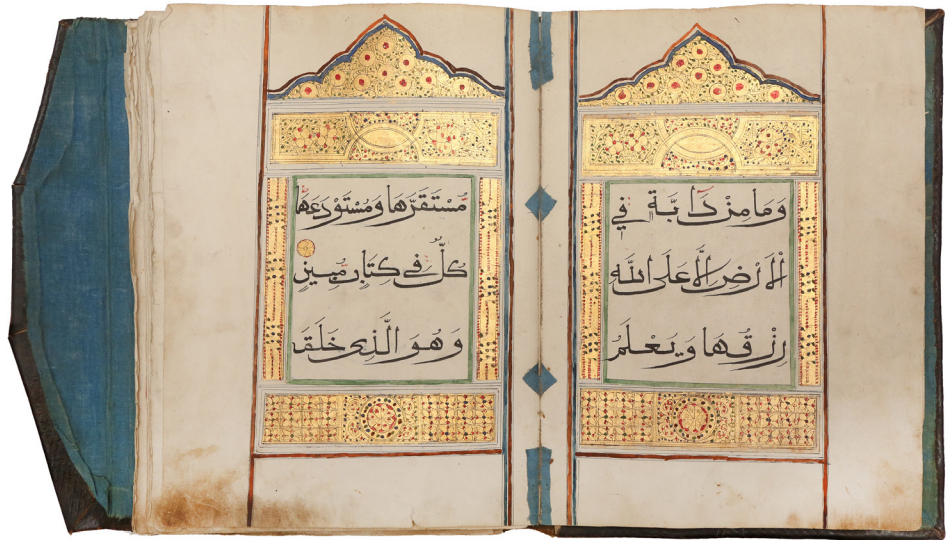 وَمَا مِنْ دَابَّةٍ فِي
الْأَرْضِ إِلَّا عَلَى اللَّهِ
رِزْقُهَا وَيَعْلَمُ
مُسْتَقَرَّهَا وَمُسْتَوْدَعَهَا
كُلٌّ فِي كِتَابٍ مُبِينٍ
وَهُوَ الَّذِي خَلَقَ